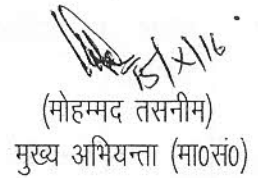 15/X/16
(मोहम्मद तसनीम)
मुख्य अभियन्ता (मा0सं0)